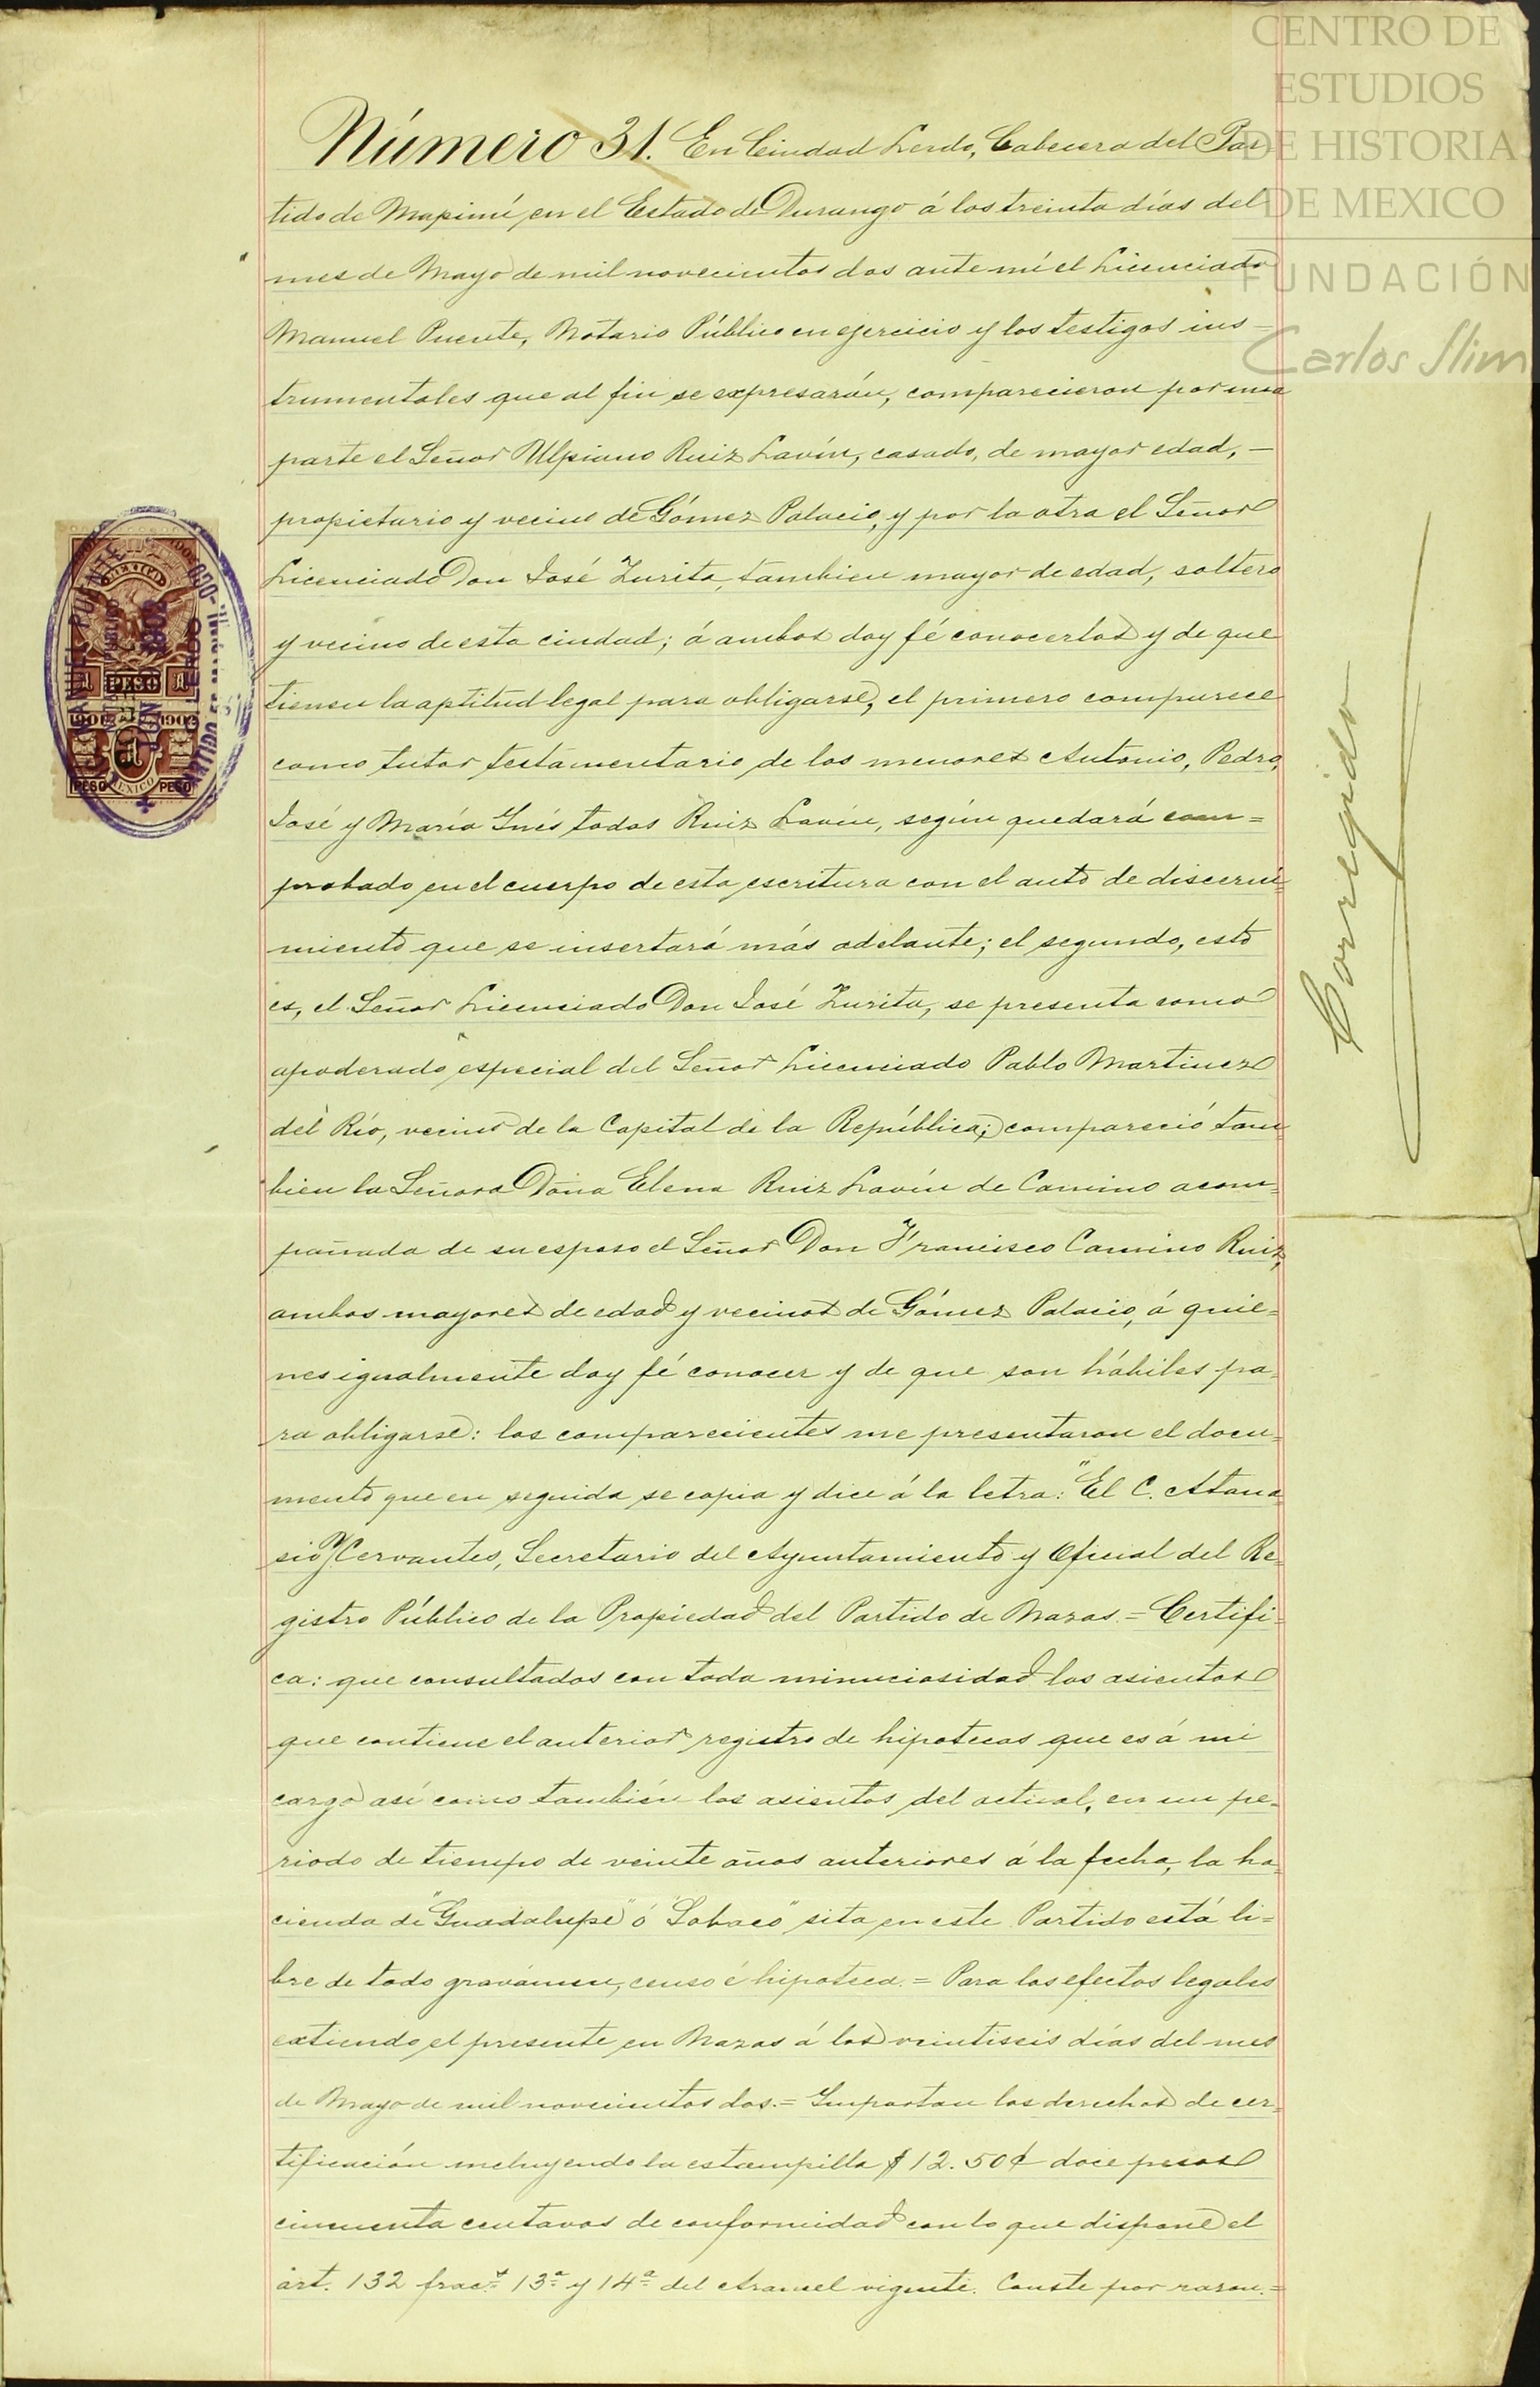 CENTRO DE
ESTUDIOS
DE HISTORIA
DE MEXICO
FUNDACIÓN
Carlos Slim
Número 31. En Ciudad Lerdo, Cabecera del Par-
tido de Mapimí, en el Estado de Durango á los treinta días del
mes de Mayo de mil novecientos dos ante mí el Licenciado
Manuel Puente, Notario Público en ejercicio y los testigos ins-
trumentales que al fin se expresarán, comparecieron por una
parte el Señor Ulpiano Ruiz Lavín, casado, de mayor edad, -
propietario y vecino de Gómez Palacio, y por la otra el Señor
Licenciado Don José Zurita, tambien mayor de edad, soltero
y vecino de esta ciudad; á ambos doy fé conocerlos y de que
tienen la aptitud legal para obligarse, el primero comparece
como tutor testamentario de los menores Antonio, Pedro,
José y María Inés todos Ruiz Lavín, según quedará com=
probado en el cuerpo de esta escritura con el auto de discerni=
miento que se insertará más adelante; el segundo, esto
es, el Señor Licenciado Don José Zurita, se presenta como
apoderado especial del Señor Licenciado Pablo Martinez
del Río, vecino de la Capital de la República; compareció tam
bien la Señora Doña Elena Ruiz Lavín de Camino acom=
pañada de su esposo el Señor Don Francisco Camino Ruiz,
ambos mayores de edad y vecinos de Gómez Palacio, á quie=
nes igualmente doy fé conocer y de que son hábiles pa=
ra obligarse: los comparecientes me presentaron el docu=
mento que en seguida se copia y dice á la letra: "El C. Atana
sio Y. Cervantes, Secretario del Ayuntamiento y Oficial del Re=
gistro Público de la Propiedad del Partido de Nazas.= Certifi=
ca: que consultados con toda minuciosidad los asientos
que contiene el anterior registro de hipotecas que es á mi
cargo así como también los asientos del actual, en un pe=
riodo de tiempo de veinte años anteriores á la fecha, la ha=
cienda de "Guadalupe" ó "Sobaco" sita en este Partido está li=
bre de todo gravámen, censo é hipoteca.= Para los efectos legales
extiendo el presente en Nazas á los veintiseis días del mes
de Mayo de mil novecientos dos.= Importan los derechos de cer=
tificación incluyendo la estampilla $12.50¢ doce pesos
cincuenta centavos de conformidad con lo que dispone el
art. 132 fracs. 13ª y 14ª del Arancel vigente. Conste por razon.=
Corregido
MANUEL PUENTE
1 PESO 1
1901 1902
PESO MEXICO PESO